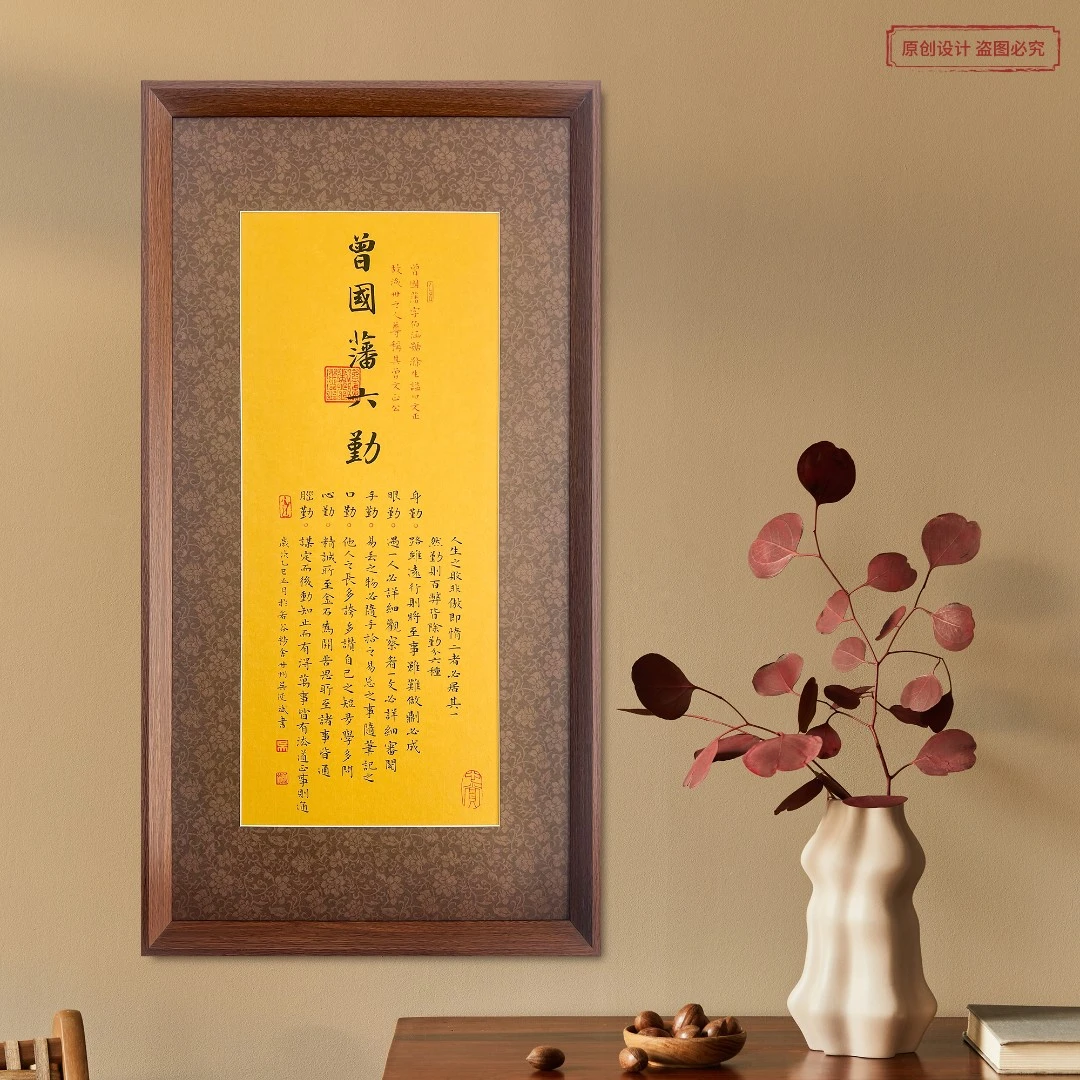 原创设计 盗图必究
曾國藩六勤
人生之敗非傲即惰二者必居其一
然勤則百弊皆除勤分六種
身勤。路雖遠行則將至事雖難做則必成
眼勤。遇一人必詳細觀察看一文必詳細審閱
手勤。易丟之物必隨手拾之易忘之事隨筆記之
口勤。他人之長多誇多讚自己之短多學多問
心勤。精誠所至金石為開苦思所至諸事皆通
腦勤。謀定而後動知止而有得萬事皆有法道正事則通